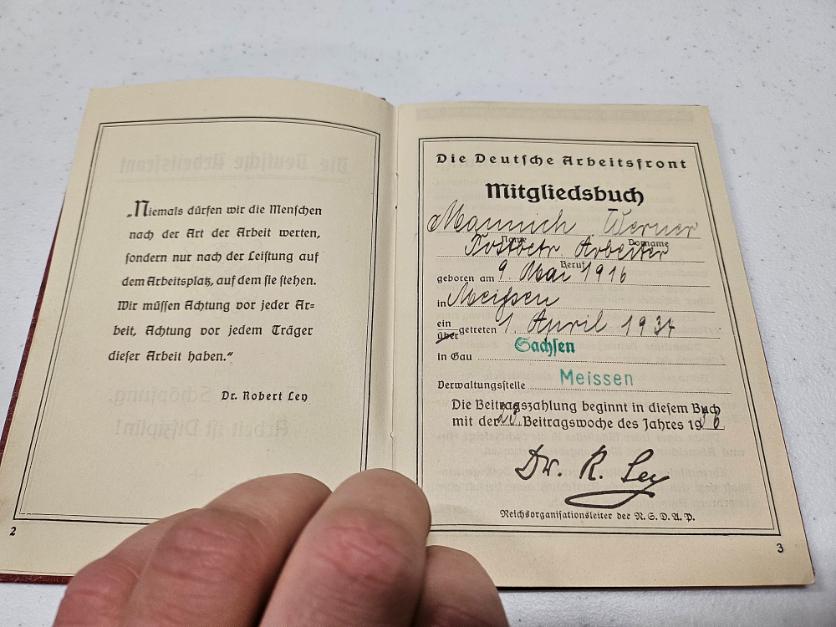 „Niemals dürfen wir die Menschen
nach der Art der Arbeit werten,
sondern nur nach der Leistung auf
dem Arbeitsplatz, auf dem sie stehen.
Wir müssen Achtung vor jeder Ar=
beit, Achtung vor jedem Träger
dieser Arbeit haben.“
Dr. Robert Ley
2
Die Deutsche Arbeitsfront
Mitgliedsbuch
Mannich Werner
Name Vorname
Arbeiter
Beruf
geboren am 9. Mai 1916
in Meißen
ein
über getreten 1. April 1934
in Gau Sachsen
Verwaltungsstelle Meissen
Die Beitragszahlung beginnt in diesem Buch
mit der Beitragswoche des Jahres 19
Dr. R. Ley
Reichsorganisationsleiter der N.S.D.A.P.
3